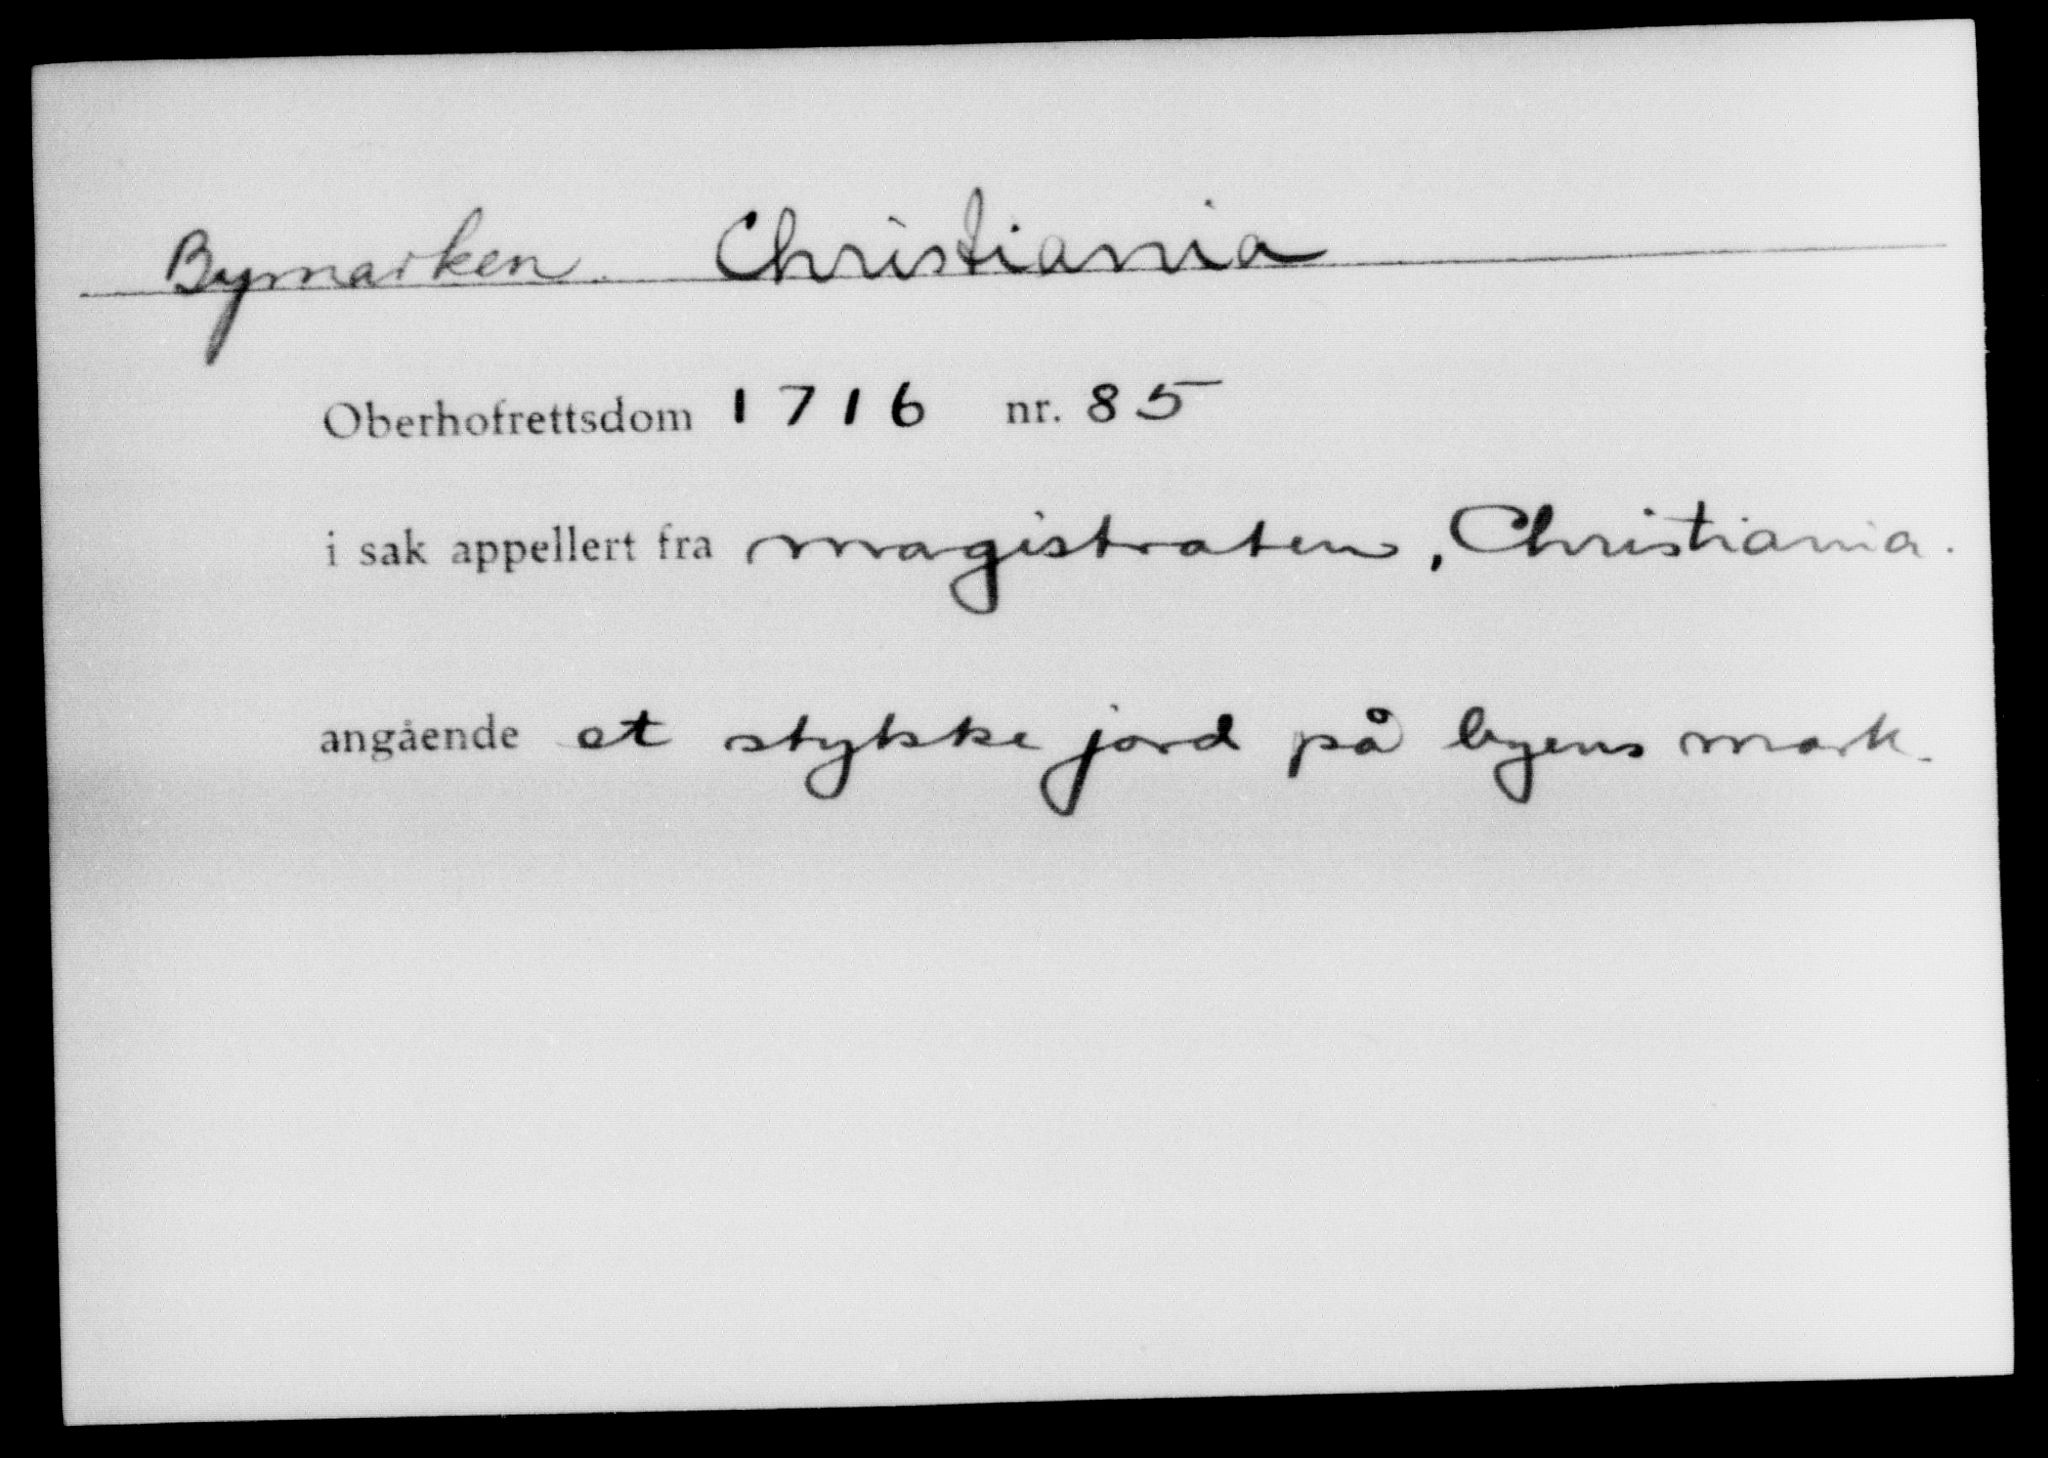 Bymarken. Christiania
Oberhofrettsdom 1716 nr. 85
i sak appellert fra magistraten, Christiania.
angående et stykke jord på byens mark.